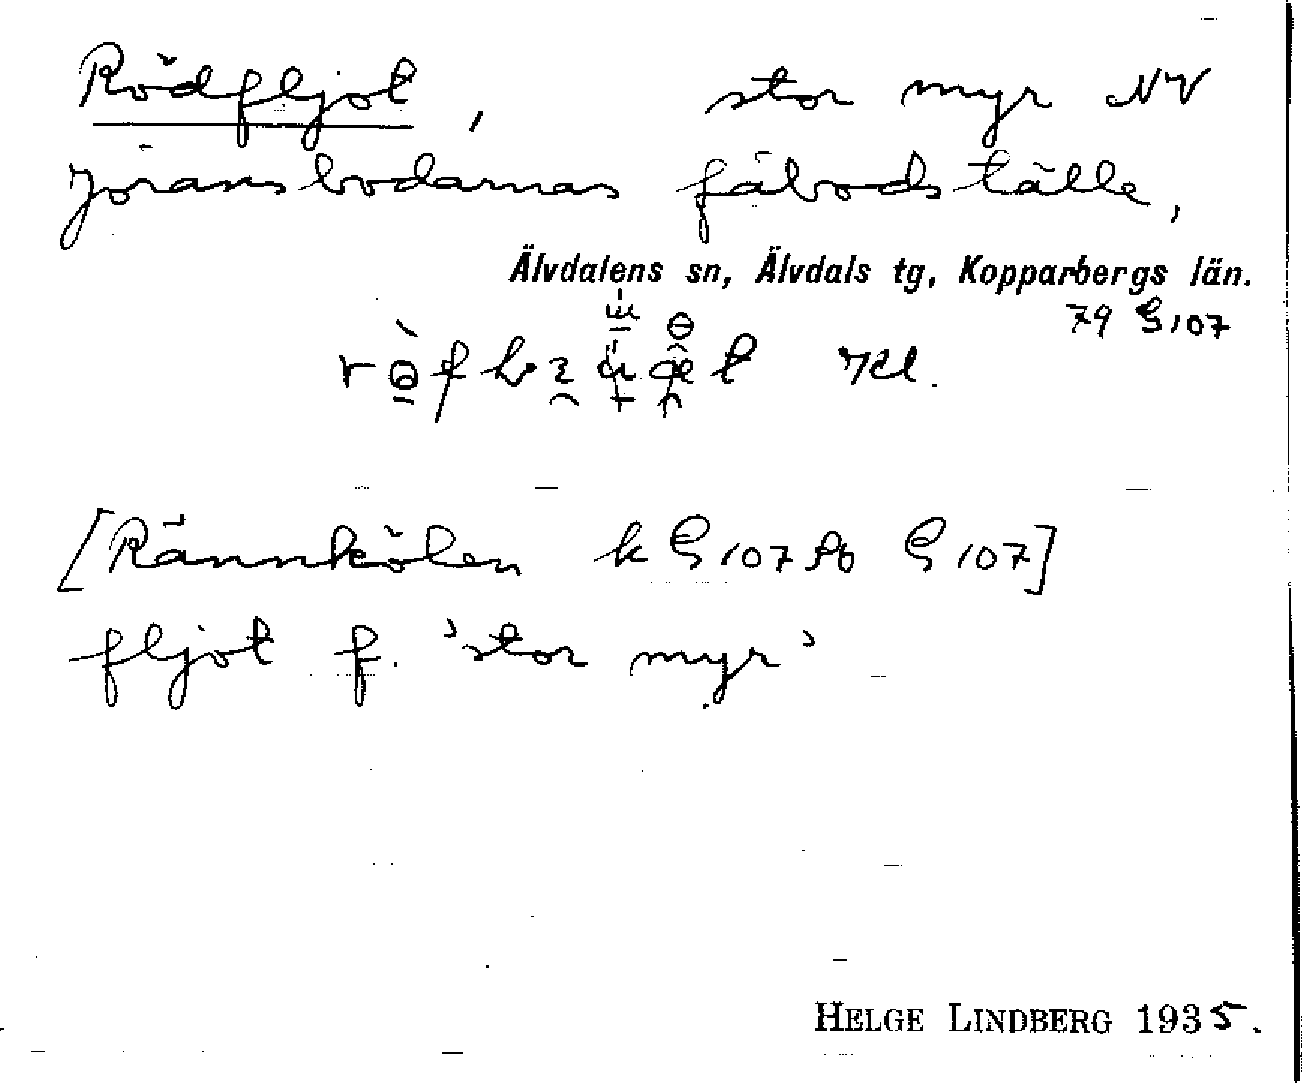 Rödfljot, stor myr NV
Jöransbodarnas fäbodställe,
Älvdalens sn, Älvdals tg, Kopparbergs län.
79 G 107
[Rännkölen k G 107 Ab G 107]
fljot f. 'stor myr'
HELGE LINDBERG 1935.